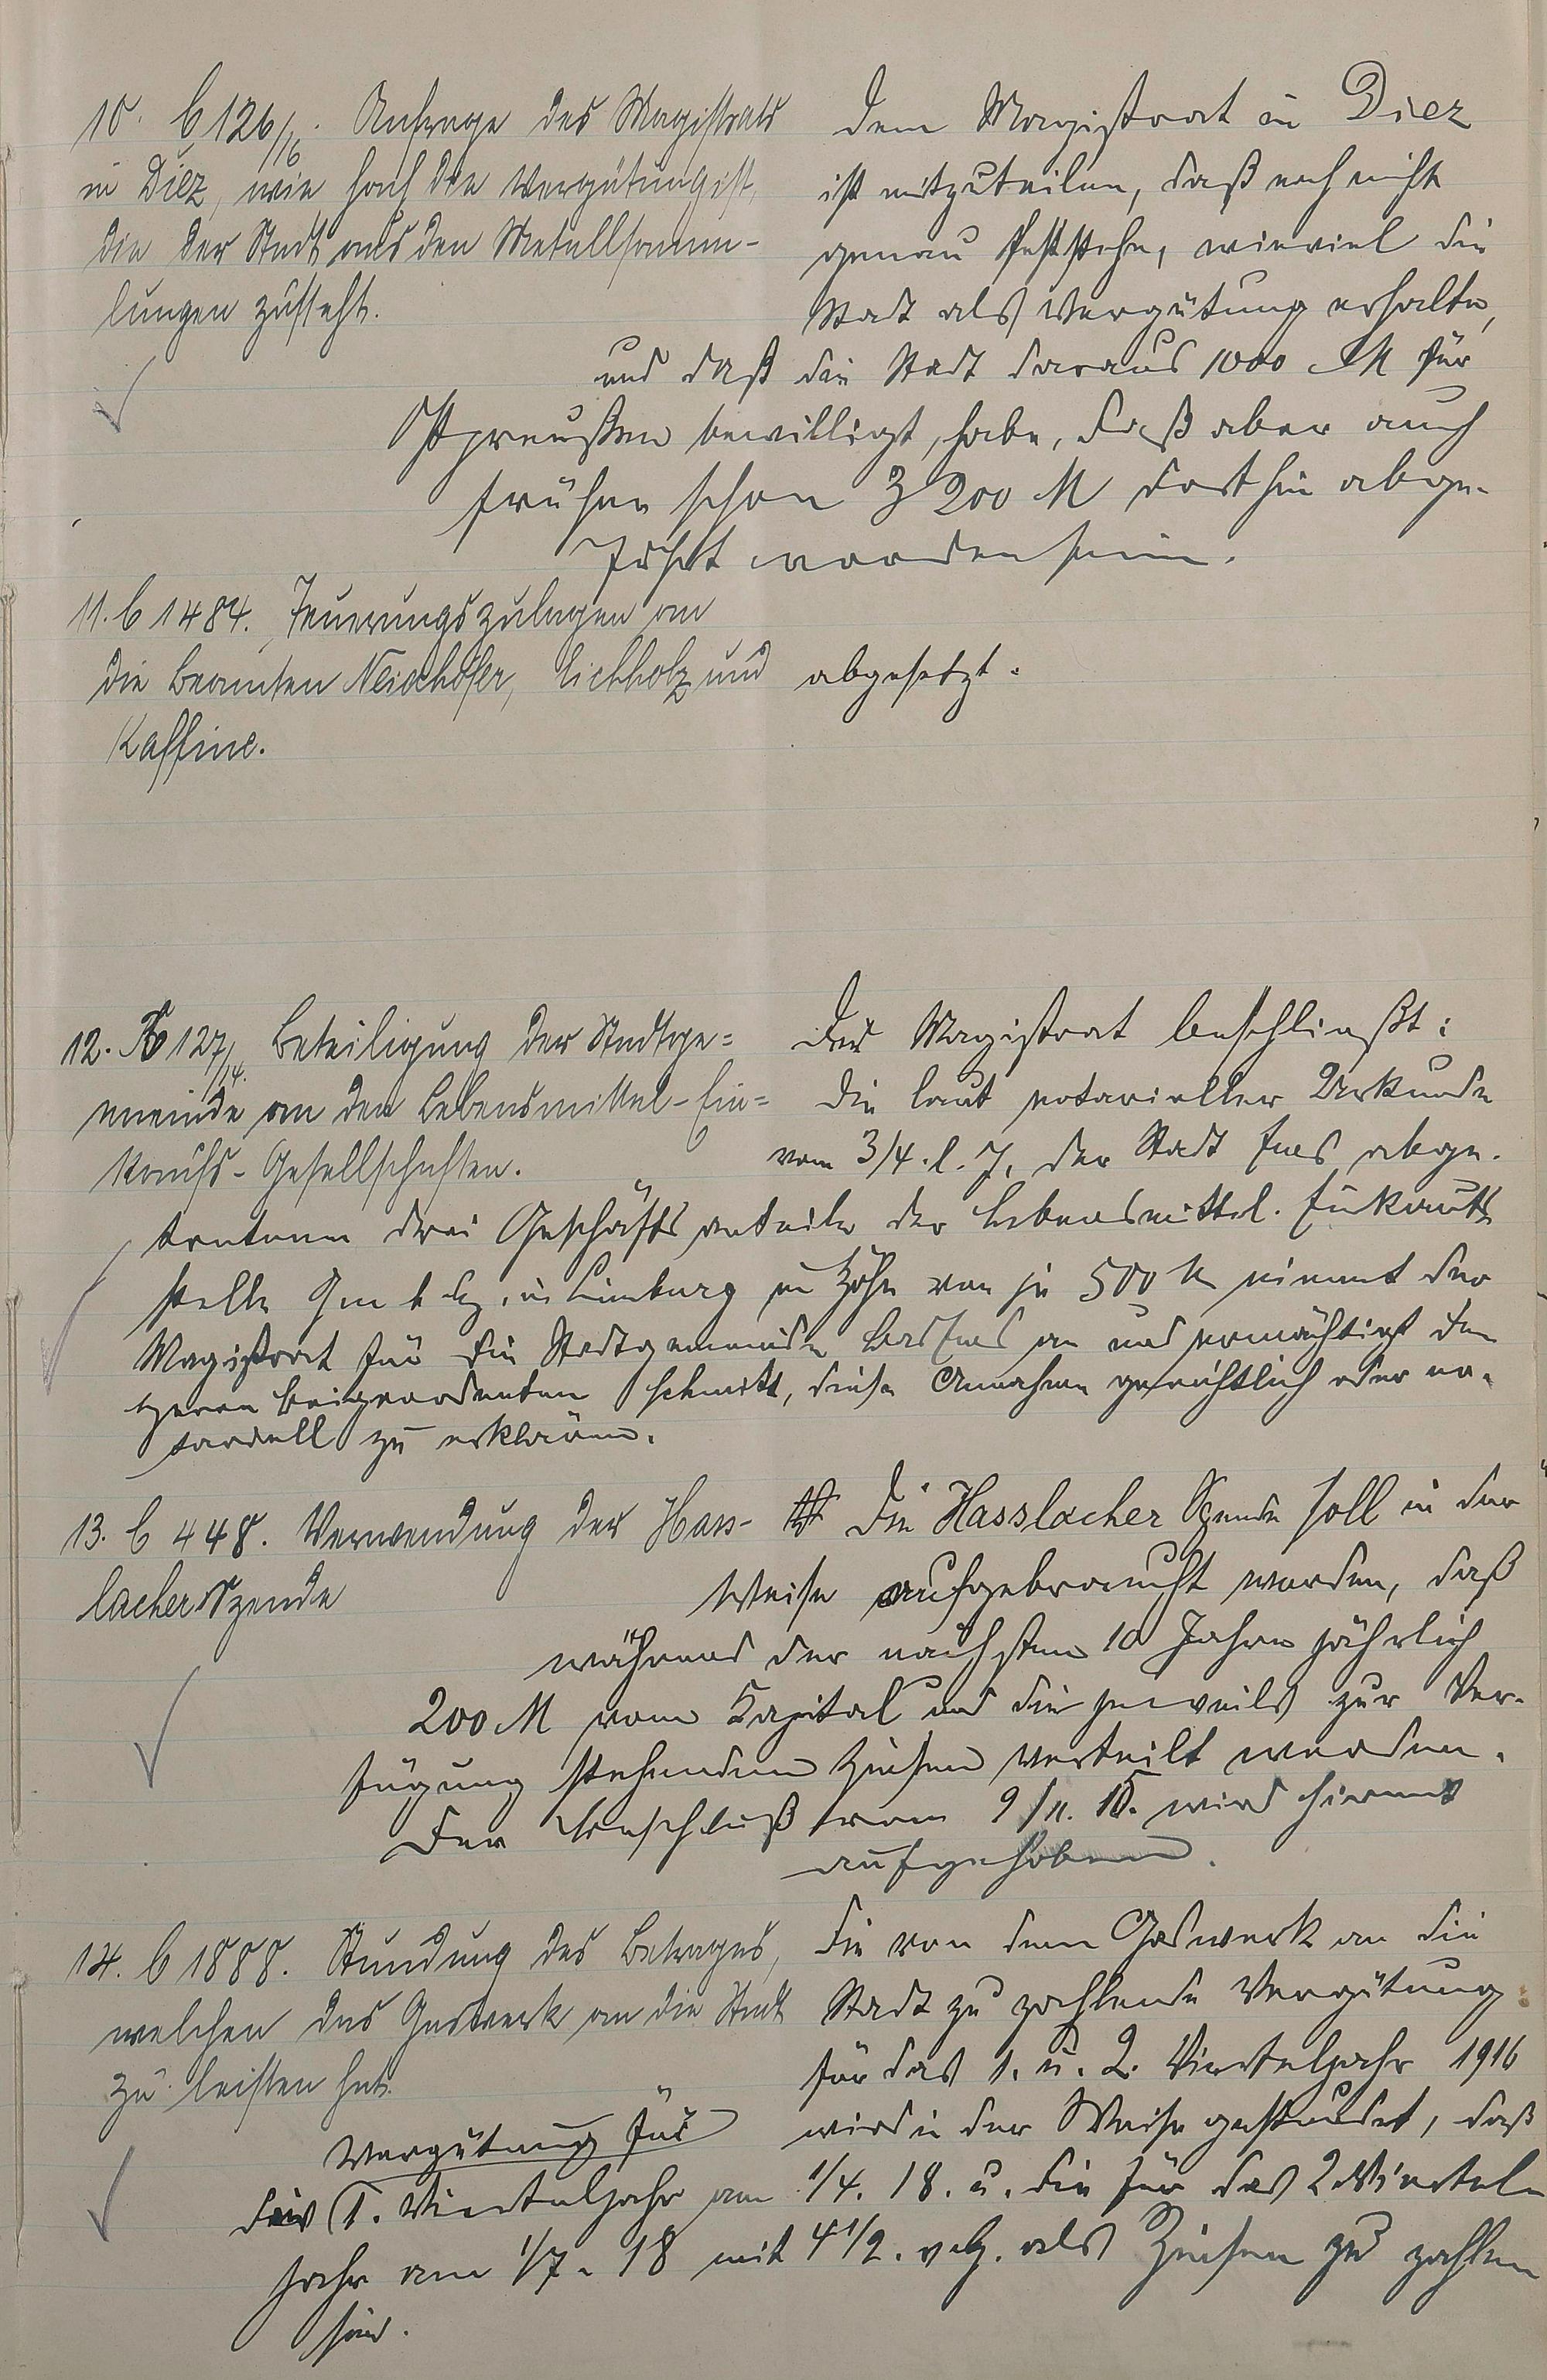 10. C 126/16. Anfrage des Magistrats
in Diez, wie hoch die Vergütung ist,
die der Stadt aus den Metallsamm-
lungen zusteht.
Dem Magistrat in Diez
ist mitzuteilen, daß noch nicht
genau feststehe, wieviel die
Stadt als Vergütung erhalte,
und daß die Stadt daraus 1000 M für
Ostpreußen bewilligt habe, daß aber auch
früher schon 3200 M dorthin abge-
führt worden seien.
11. C 1484. Teuerungszulagen an
die Beamten Neidhöfer, Eichholz und
Kaffine.
abgesetzt.
12. B 127/14. Beteiligung der Stadtge=
meinde an den Lebensmittel-Ein=
kaufs-Gesellschaften.
Der Magistrat beschließt:
Die laut notarieller Urkunde
vom 3/4. l. J. der Stadt Ems abge-
tretenen drei Geschäftsanteile der Lebensmittel-Einkaufs
stelle G m b H. in Limburg in Höhe von je 500 M nimmt der
Magistrat für die Stadtgemeinde Bad Ems an und ermächtigt den
Herrn Beigeordneten Schmitt, diese Annahme gerichtlich oder no-
tariell zu erklären.
13. C 448. Verwendung der Hass-
lacher Spende
Die Hasslacher Spende soll in der
Weise aufgebraucht werden, daß
während der nächsten 10 Jahre jährlich
200 M vom Kapital und die jeweils zur Ver-
fügung stehenden Zinsen verteilt werden.
Der Beschluß vom 9/11. 15. wird hiermit
aufgehoben.
14. C 1888. Stundung des Betrages,
welchen das Gaswerk an die Stadt
zu leisten hat.
Die von dem Gaswerk an die
Stadt zu zahlende Vergütung
für das 1. u. 2. Vierteljahr 1916
wird in der Weise gestundet, daß
Vergütung für
die 1. Vierteljahr am 1/4. 18. u. die für das 2. Viertel-
jahr am 1/7. 18 mit 4 1/2 v. H. als Zinsen zu zahlen
sind.